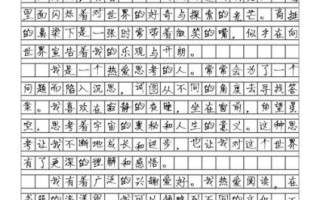 里面闪烁着对世界的好奇与探索的光芒。高挺
的鼻梁下是一张时常带着微笑的嘴，似乎在向
世界宣告着我的乐观与开朗。
我是一个热爱思考的人。常常会为了一个
问题而陷入沉思，试图从不同的角度去寻找答
案。我喜欢在寂静的夜晚，坐在窗前，仰望星
空，思考着宇宙的奥秘和人生的意义。这种思
考让我不断地成长和进步，也让我对这个世界
有了更深的理解和感悟。
我有着广泛的兴趣爱好。我热爱阅读，在